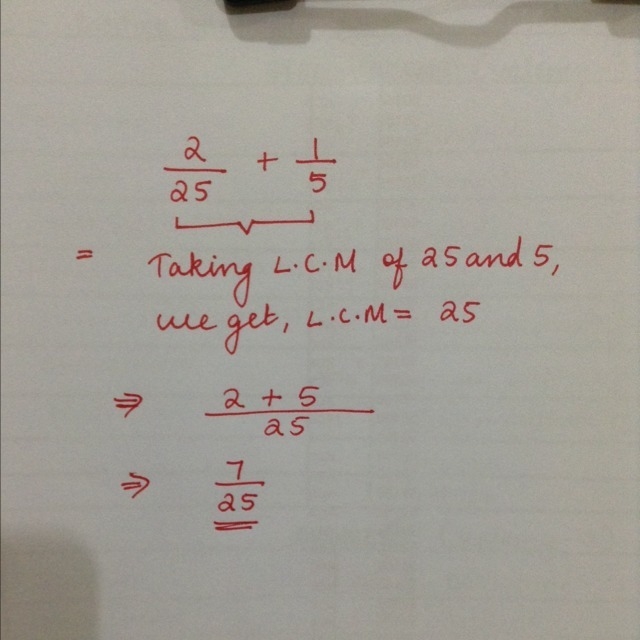 2/25 + 1/5
= Taking L.C.M of 25 and 5,
we get, L.C.M = 25
⇒ 2 + 5/25
⇒ 7/25